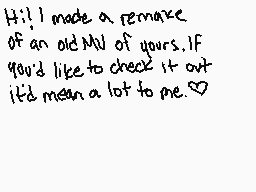 Hi! I made a remake
of an old MV of yours. If
you'd like to check it out
it'd mean a lot to me.♡